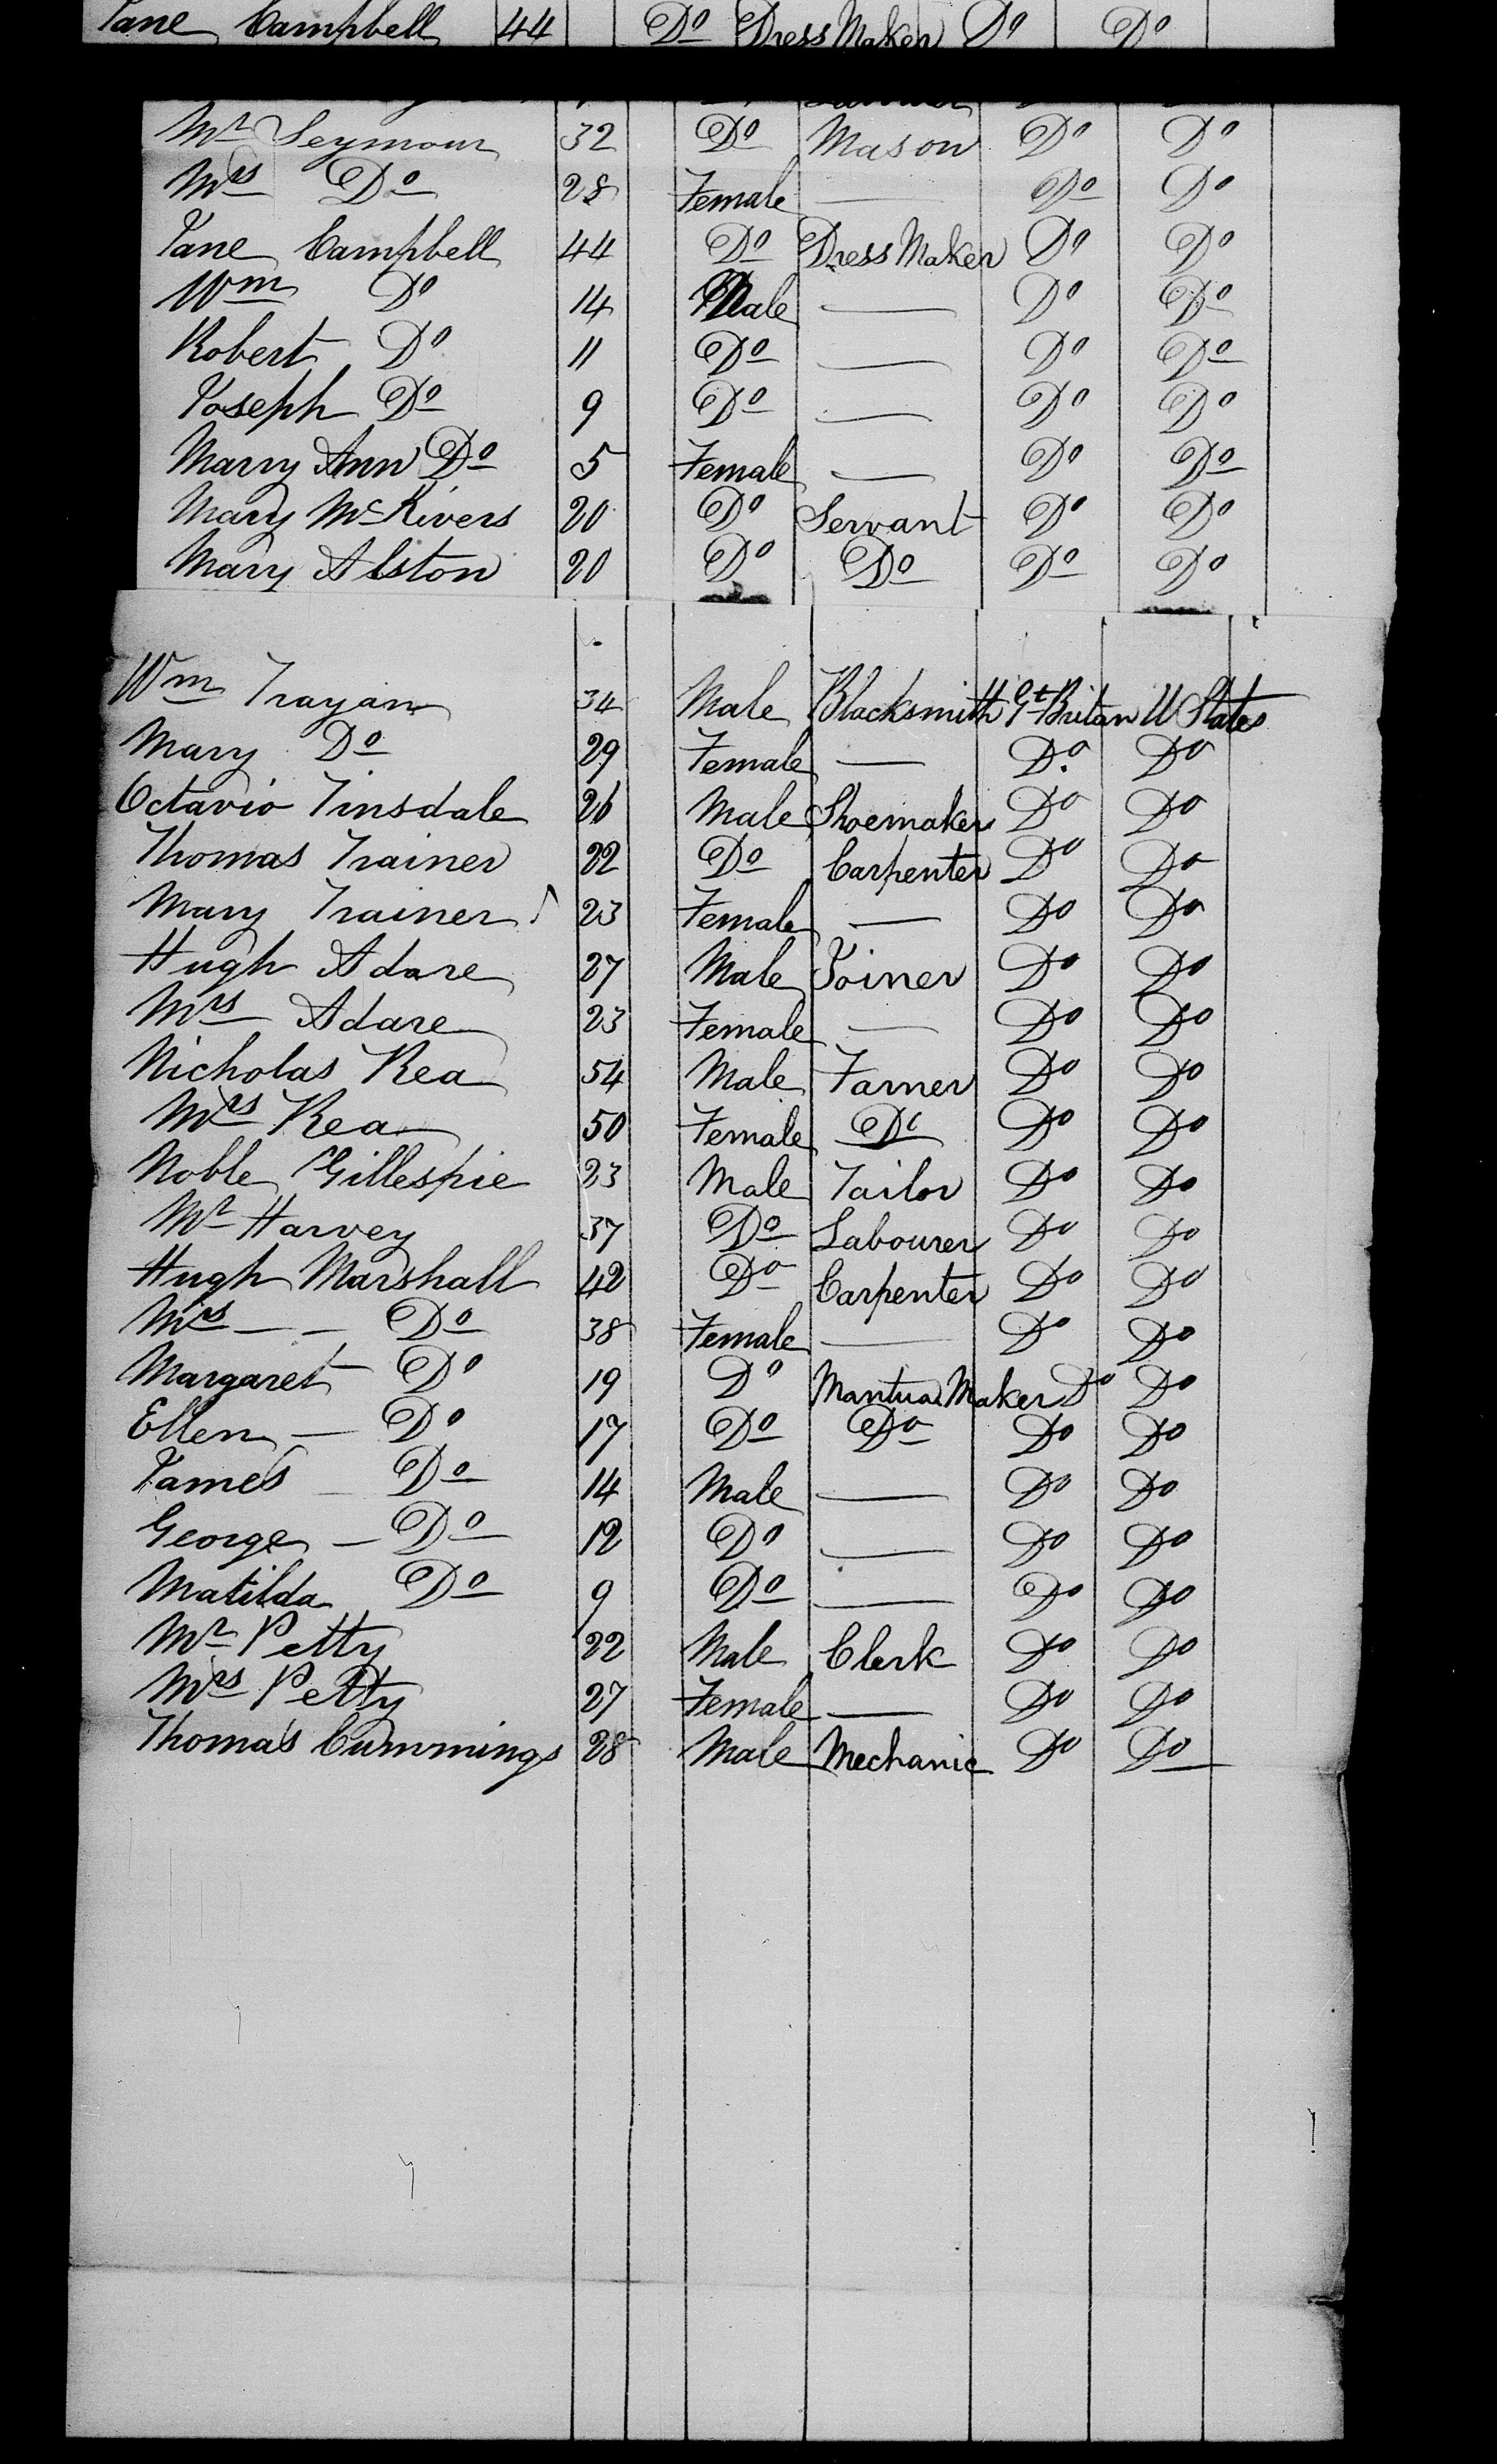 Jane Campbell 44 Do Dress Maker Do Do
Mr Seymour 32 Do Mason Do Do
Mrs Do 28 Female — Do Do
Jane Campbell 44 Do Dress Maker Do Do
Wm Do 14 Male — Do Do
Robert Do 11 Do — Do Do
Joseph Do 9 Do — Do Do
Marry Ann Do 5 Female — Do Do
Mary McKivers 20 Do Servant Do Do
Mary Alston 20 Do Do Do Do
Wm Trayan 34 Male Blacksmith Gt Britan U States
Mary Do 29 Female — Do Do
Octavio Tinsdale 26 Male Shoemaker Do Do
Thomas Trainer 22 Do Carpenter Do Do
Mary Trainer 23 Female — Do Do
Hugh Adare 27 Male Joiner Do Do
Mrs Adare 23 Female — Do Do
Nicholas Rea 54 Male Farmer Do Do
Mrs Rea 50 Female Do Do Do
Noble Gillespie 23 Male Tailor Do Do
Mr Harvey 37 Do Labourer Do Do
Hugh Marshall 42 Do Carpenter Do Do
Mrs — — Do 38 Female — Do Do
Margaret Do 19 Do Mantua Maker Do Do
Ellen — Do 17 Do Do Do Do
James — Do 14 Male — Do Do
George — Do 12 Do — Do Do
Matilda Do 9 Do — Do Do
Mr Petty 22 Male Clerk Do Do
Mrs Petty 27 Female — Do Do
Thomas Cummings 28 Male Mechanic Do Do